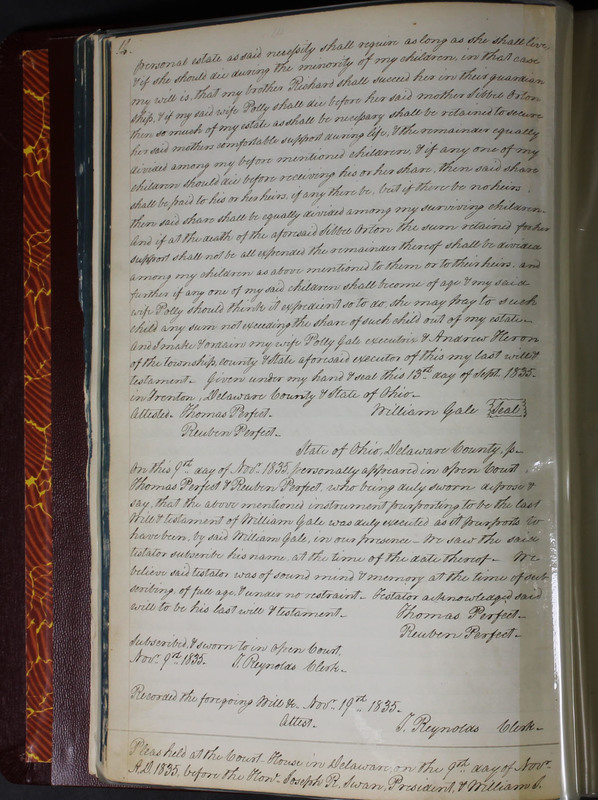 14.
personal estate as said necessity shall require as long as she shall live,
& if she should die during the minority of my children, in that case
my will is, that my brother Richard shall succeed her in their guardian
ship, & if my said wife Polly shall die before her said mother Sibbel Orton
then so much of my estate as shall be necessary shall be retained to secure
her said mothers comfortable support during life, & the remainder equally
divided among my before mentioned children, & if any one of my
children should die before receiving his or her share, then said share
shall be paid to his or her heirs, if any there be, but if there be no heirs
then said share shall be equally divided among my surviving children
And if at the death of the aforesaid Sibbel Orton the sum retained for her
support shall not be all expended the remainder thereof shall be divided
among my children as above mentioned to them or to their heirs. and
further if any one of my said children shall become of age & my said
wife Polly should think it expedient so to do, she may pay to such
child any sum not exceeding the share of such child out of my estate
And I make & ordain my wife Polly Gale executrix & Andrew Heron
of the township, county & State aforesaid executor of this my last will &
testament. Given under my hand & seal this 13rd day of Sept. 1835
in Trenton, Delaware County & State of Ohio
Attested Thomas Perfect William Gale Seal
Reuben Perfect
State of Ohio, Delaware County, ss
On this 9rd day of Nov. 1835, personally appeared in open Court
Thomas Perfect & Reuben Perfect, who being duly sworn depose &
say, that the above mentioned instrument purporting to be the last
Will & testament of William Gale was duly executed as it purports to
have been, by said William Gale, in our presence. We saw the said
testator subscribe his name, at the time of the date thereof. We
believe said testator was of sound mind & memory at the time of sub
scribing, of full age, & under no restraint. Testator acknowledged said
will to be his last will & testament. Thomas Perfect
Reuben Perfect
Subscribed, & sworn to in open Court,
Nov. 9rd 1835. T. Reynolds Clerk
Recorded the foregoing Will &c. Nov. 19rd 1835.
Attest. T. Reynolds Clerk
Pleas held at the Court House in Delaware, on the 9rd day of Novr.
A.D. 1835, before the Honr. Joseph R. Swan, President, & William S.